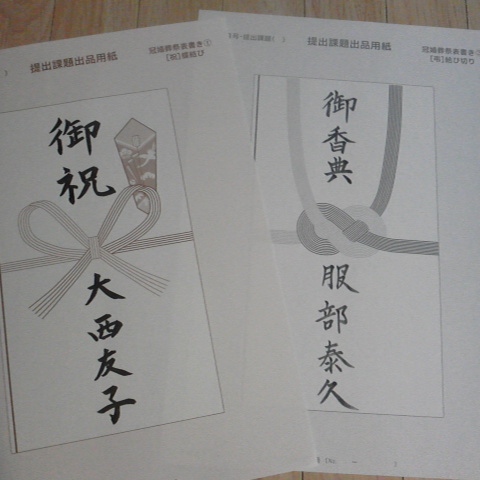 提出課題出品用紙
冠婚葬祭表書き①
[祝]蝶結び
御祝
大西友子
提出課題出品用紙
冠婚葬祭表書き②
[弔]結び切り
御香典
服部泰久